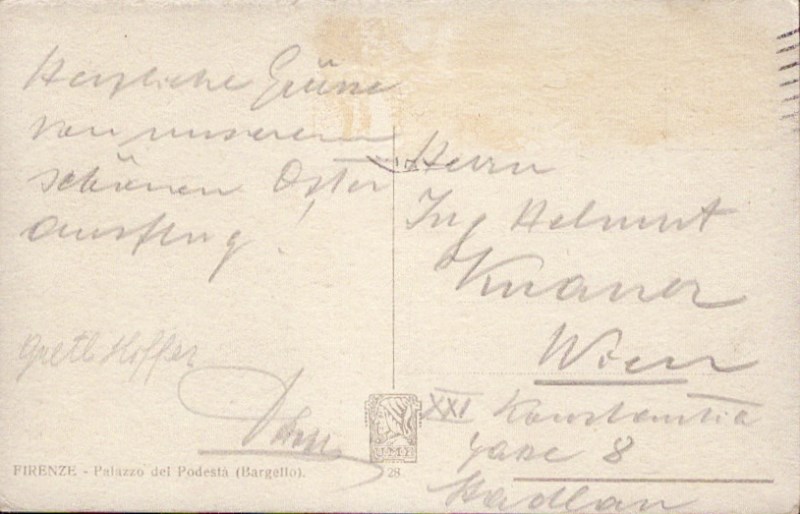 Herzliche Grüsse
von unserem
schönen Oster
ausflug!
Gretl Hoffer
Herrn
Ing Helmut
Knauer
Wien
XXI Konstantia
gasse 8
Stadlau
FIRENZE - Palazzo del Podestà (Bargello).
28